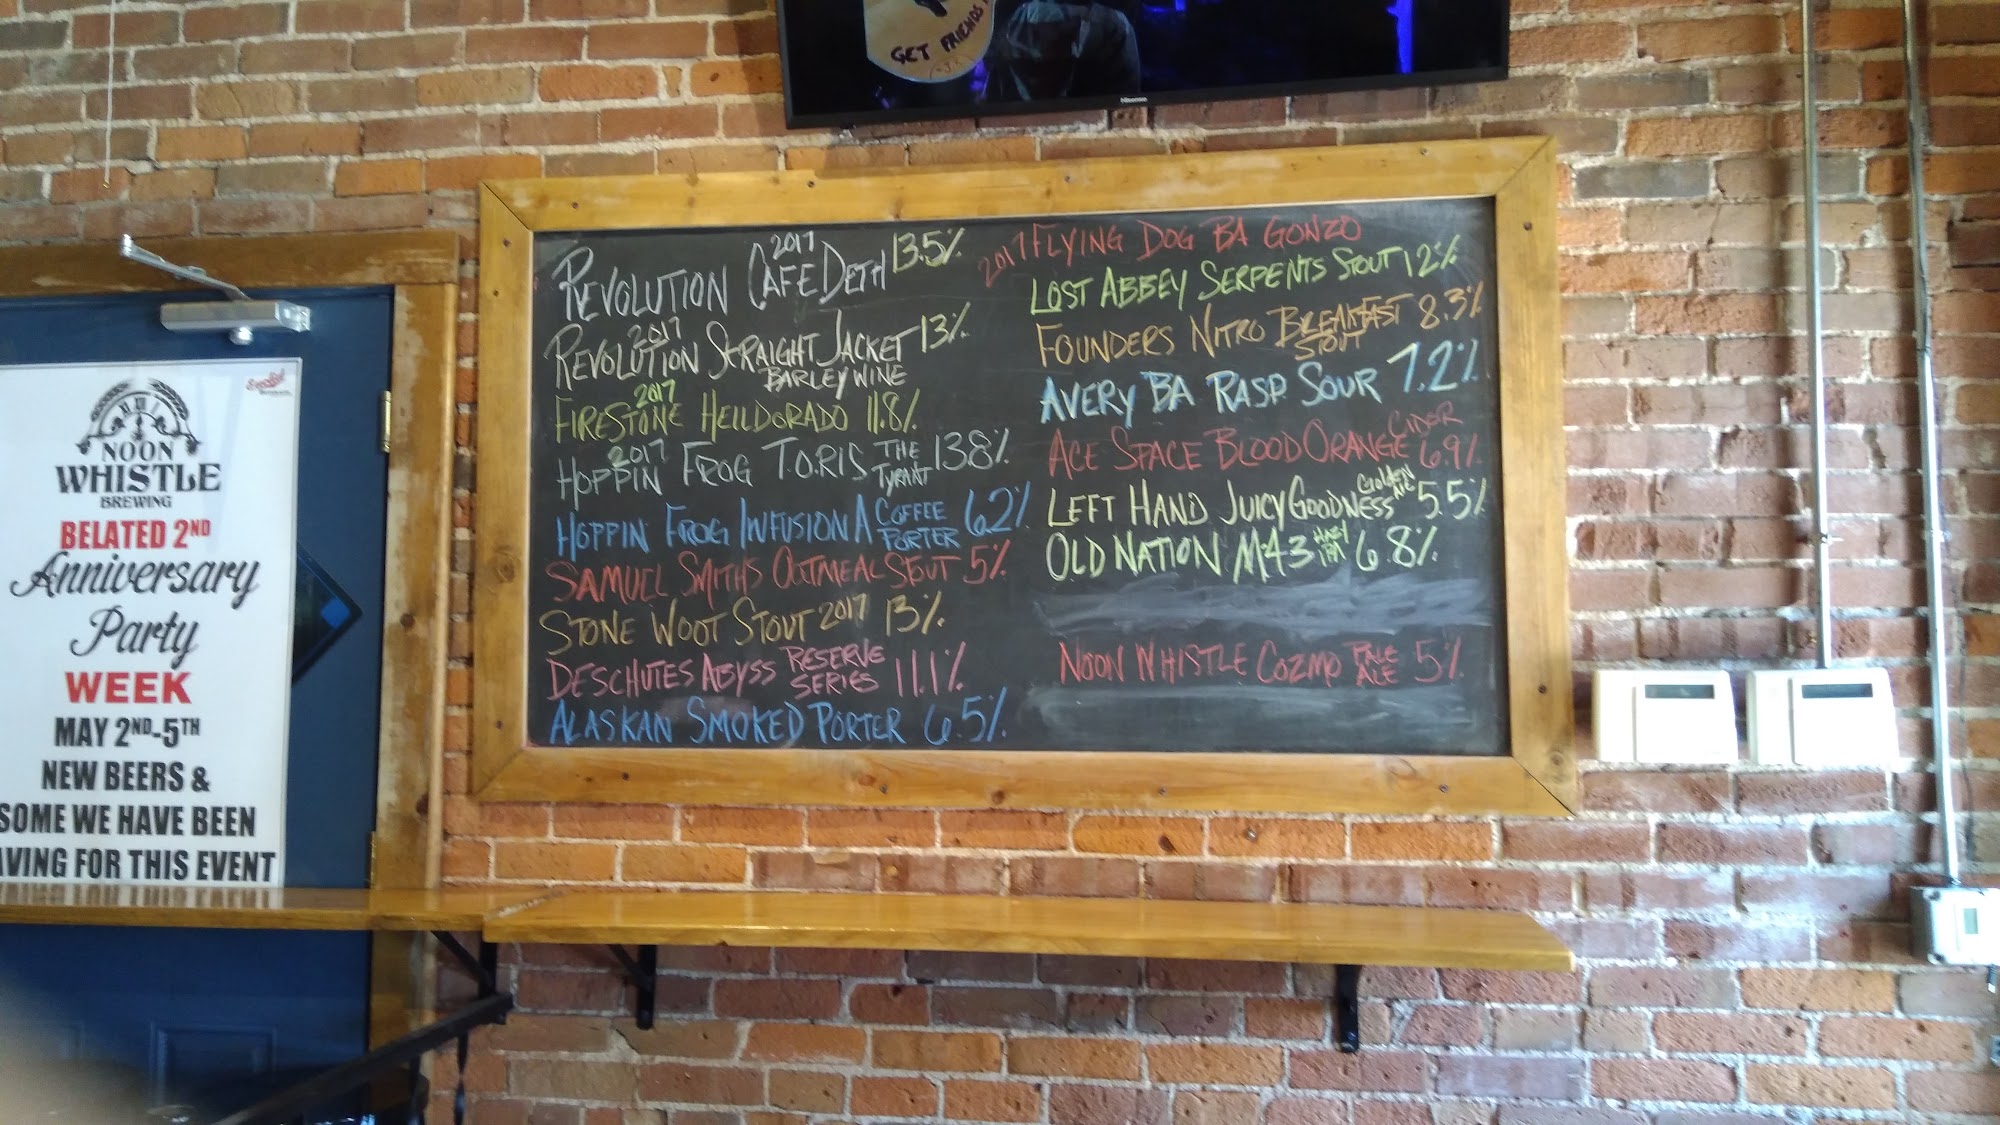 GET FRIENDS
Hisense
REVOLUTION 2017 CAFE DETH 13.5%
REVOLUTION 2017 STRAIGHT JACKET 13%
BARLEY WINE
FIRESTONE 2017 HELLDORADO 11.8%
HOPPIN 2017 FROG T.O.R.I.S THE TYRANT 13.8%
HOPPIN FROG INFUSION A COFFEE PORTER 6.2%
SAMUEL SMITHS OATMEAL STOUT 5%
STONE WOOT STOUT 2017 13%
DESCHUTES ABYSS RESERVE SERIES 11.1%
ALASKAN SMOKED PORTER 6.5%
2017 FLYING DOG BA GONZO
LOST ABBEY SERPENTS STOUT 12%
FOUNDERS NITRO BREAKFAST STOUT 8.3%
AVERY BA RASP. SOUR 7.2%
ACE SPACE BLOOD ORANGE CIDER 6.9%
LEFT HAND JUICY GOODNESS GOLDEN ALE 5.5%
OLD NATION M43 HAZY IPA 6.8%
NOON WHISTLE COZMO PALE ALE 5%
NOON
WHISTLE
BREWING
BELATED 2ND
Anniversary
Party
WEEK
MAY 2ND-5TH
NEW BEERS &
SOME WE HAVE BEEN
AVING FOR THIS EVENT